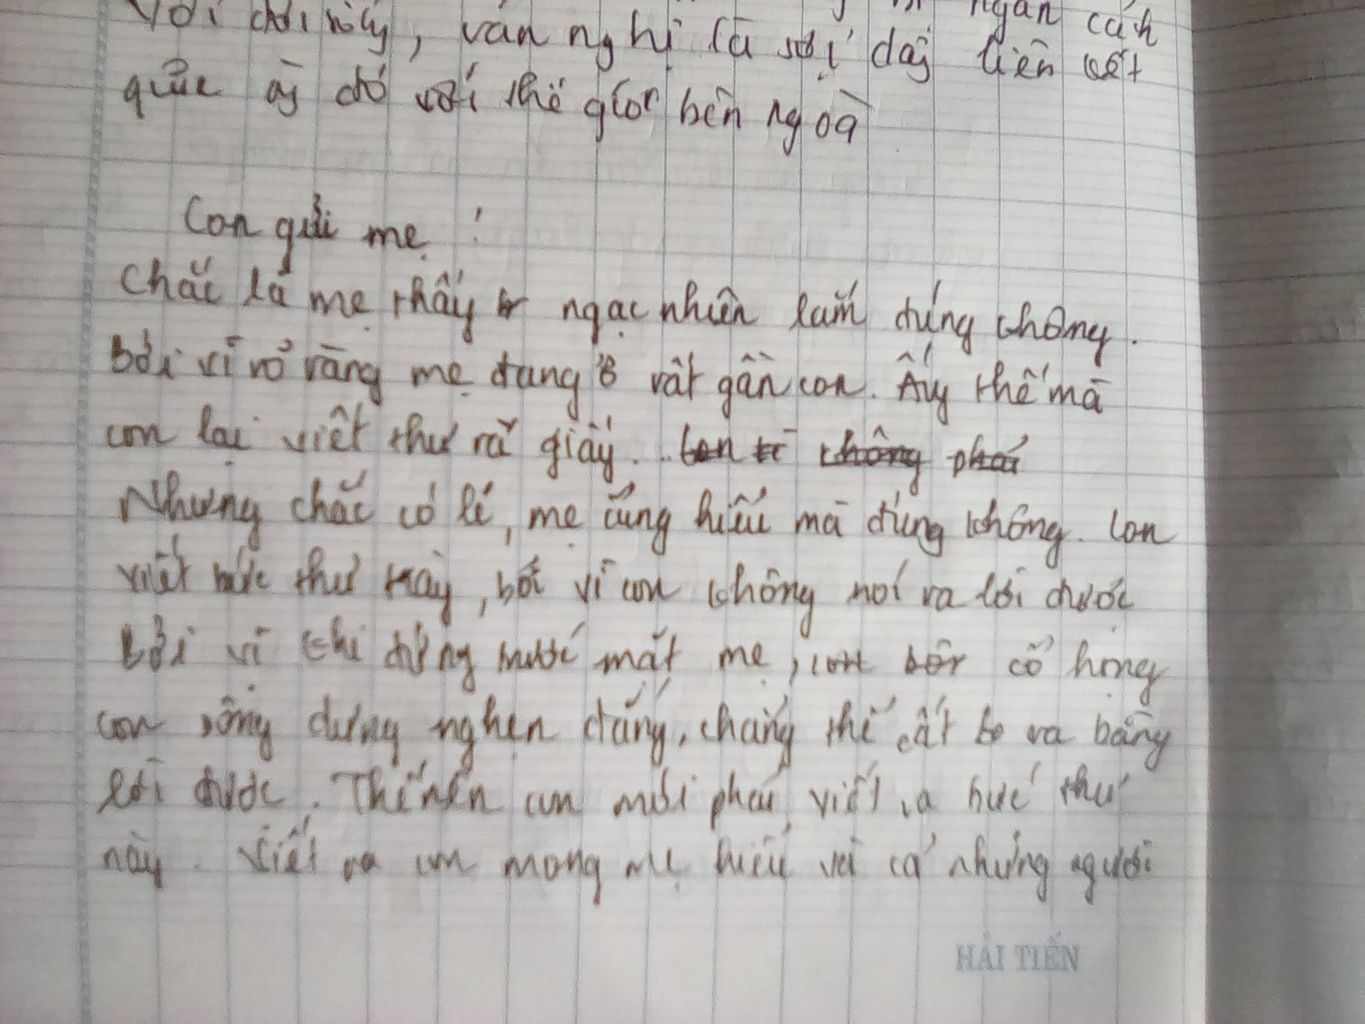 ngăn cách
với đời này, văn nghị là sợi dây liên kết
quốc ấy đó với thế giới bên ngoà
Con gửi mẹ !
Chắc là mẹ thấy ngạc nhiên lắm đúng không.
Bởi vì rõ ràng mẹ đang ở rất gần con. Ấy thế mà
con lại viết thư ra giấy. không phải
Nhưng chắc có lẽ, mẹ cũng hiểu mà đúng không. Con
viết bức thư này, bởi vì con không nói ra lời được
Bởi vì khi đứng trước mặt mẹ, cổ họng
con dưng nghẹn đắng, chẳng thể cất ra bằng
lời được. Thế nên con mới phải viết ra bức thư
này. Viết ra con mong mẹ hiểu và cả những người
HẢI TIẾN